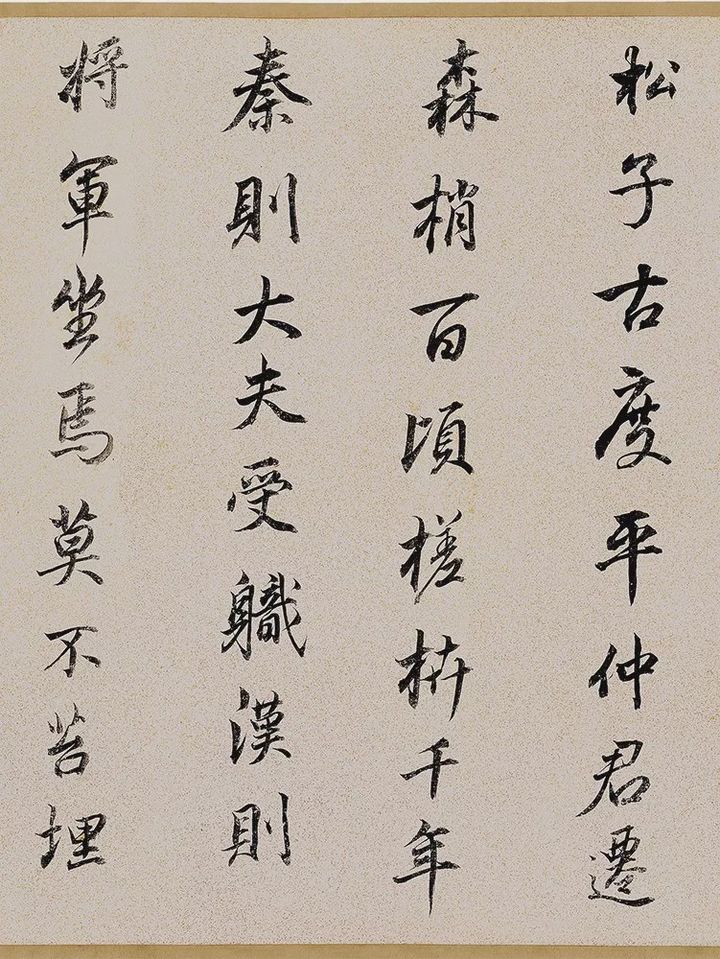 松子古度平仲君遷
森梢百頃槎枿千年
秦則大夫受職漢則
将軍坐焉莫不苔埋